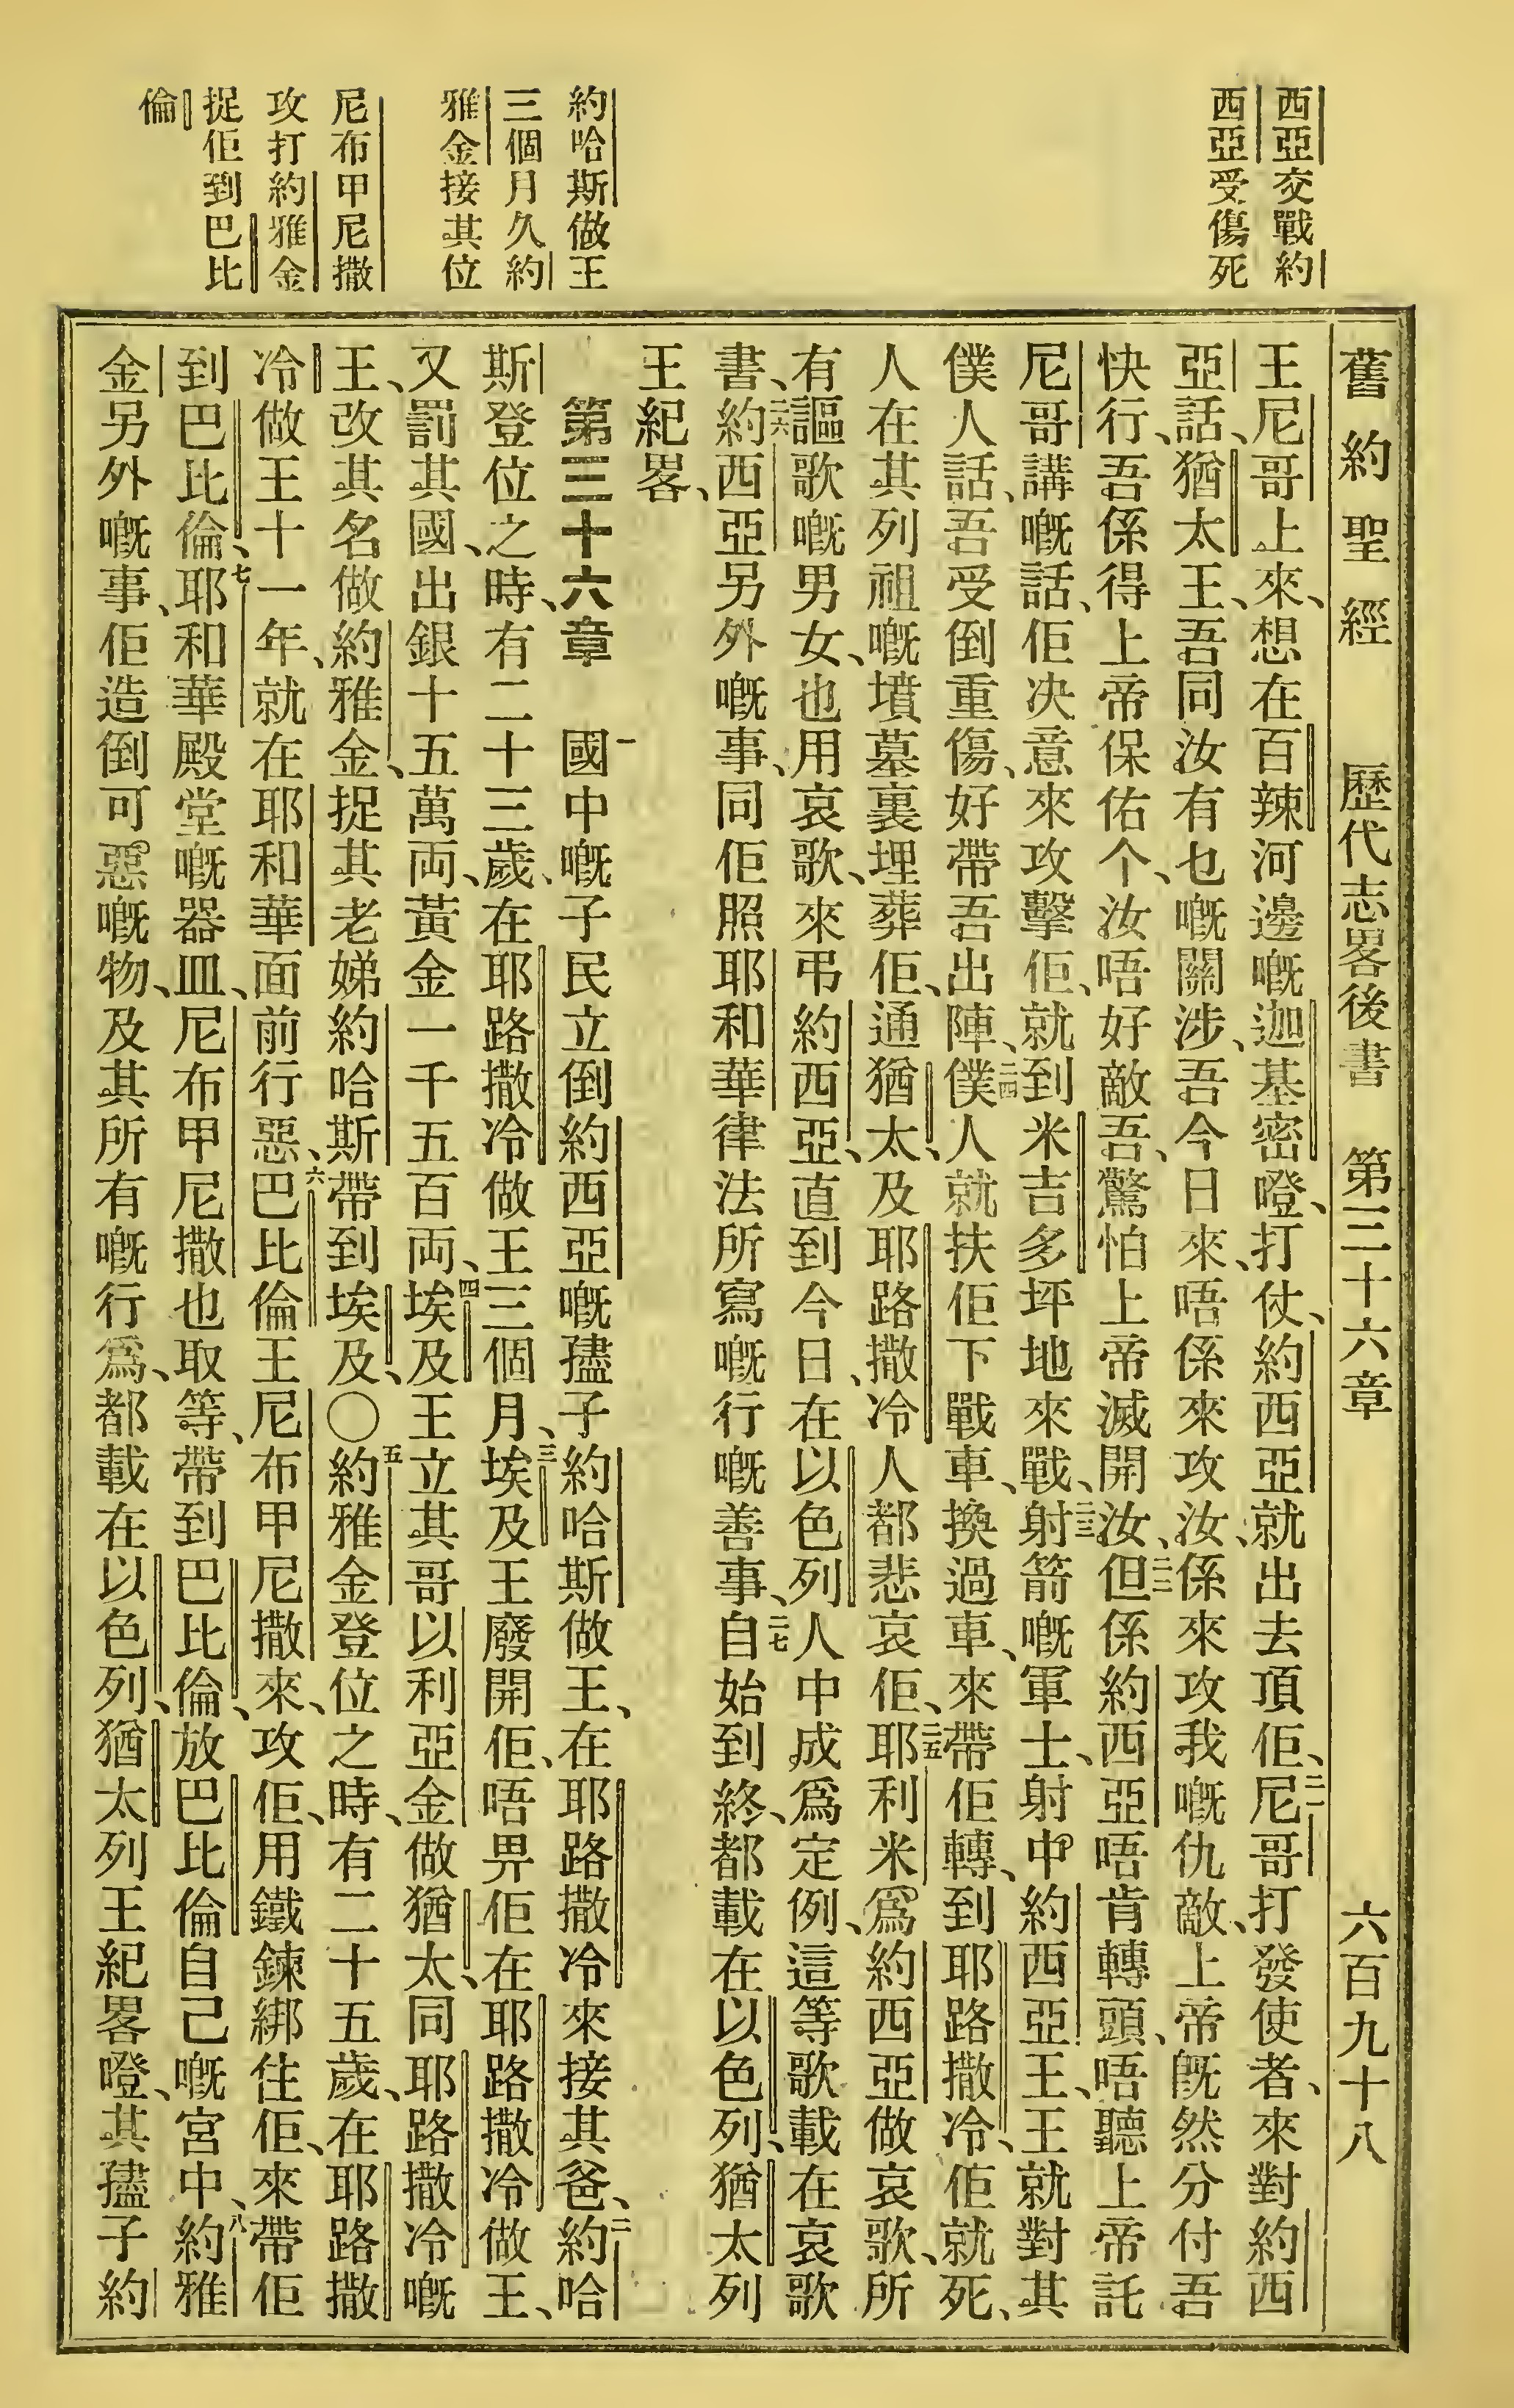 舊約聖經　歷代志畧後書　第三十六章　六百九十八
西亞交戰約
西亞受傷死
約哈斯做王
三個月久約
雅金接其位
尼布甲尼撒
攻打約雅金
捉佢到巴比
倫
王尼哥上來、想在百辣河邊嘅迦基密噔、打仗、約西亞就出去頂佢、二一尼哥打發使者、來對約西
亞話、猶太王、吾同汝有乜嘅關涉、吾今日來、唔係來攻汝、係來攻我嘅仇敵、上帝旣然分付吾
快行、吾係得上帝保佑个、汝唔好敵吾、驚怕上帝滅開汝、二二但係約西亞唔肯轉頭、唔聽上帝託
尼哥講嘅話、佢决意來攻擊佢、就到米吉多坪地來戰、二三射箭嘅軍士、射中約西亞王、王就對其
僕人話、吾受倒重傷、好帶吾出陣、二四僕人就扶佢下戰車、換過車、來帶佢轉、到耶路撒冷、佢就死、
人在其列祖嘅墳墓裏埋葬佢、通猶太、及耶路撒冷人都悲哀佢、二五耶利米爲約西亞做哀歌、所
有謳歌嘅男女、也用哀歌、來弔約西亞、直到今日、在以色列人中成爲定例、這等歌載在哀歌
書、二六約西亞另外嘅事、同佢照耶和華律法所寫嘅行嘅善事、二七自始到終、都載在以色列、猶太列
王紀畧、
第三十六章　一國中嘅子民立倒約西亞嘅孻子約哈斯做王、在耶路撒冷來接其爸、二約哈
斯登位之時、有二十三歲、在耶路撒冷做王三個月、三埃及王廢開佢、唔畀佢在耶路撒冷做王、
又罰其國、出銀十五萬両、黃金一千五百両、四埃及王立其哥以利亞金做猶太、同耶路撒冷嘅
王、改其名做約雅金、捉其老娣約哈斯帶到埃及、〇五約雅金登位之時、有二十五歲、在耶路撒
冷做王十一年、就在耶和華面前行惡、六巴比倫王尼布甲尼撒來、攻佢、用鐵鍊綁住佢、來帶佢
到巴比倫、七耶和華殿堂嘅器皿、尼布甲尼撒也取等、帶到巴比倫、放巴比倫自己嘅宮中、八約雅
金另外嘅事、佢造倒可惡嘅物、及其所有嘅行爲、都載在以色列、猶太列王紀畧噔、其孻子約